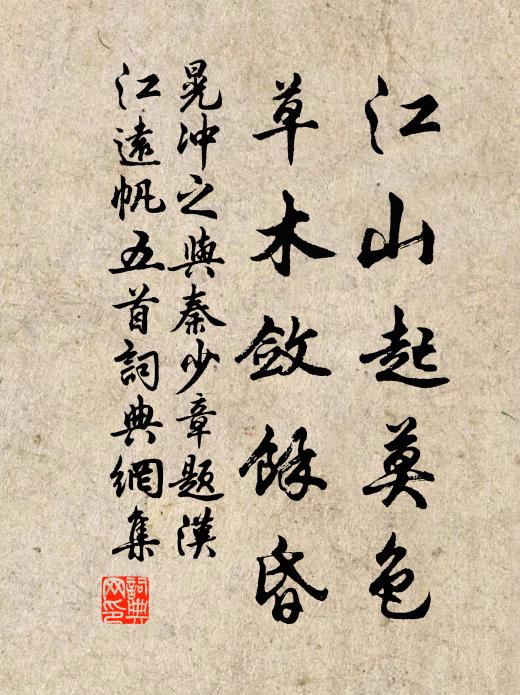 江山起莫色
草木斂餘昏
晁冲之與秦少章題漢
江遠帆五首詞典網集
詞典網印